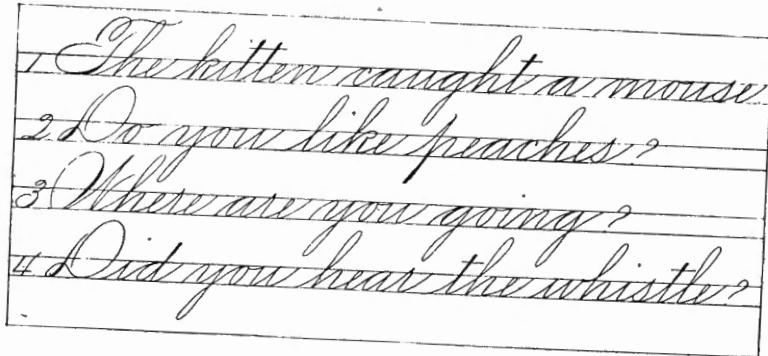 1 The kitten caught a mouse
2 Do you like peaches?
3 Where are you going?
4 Did you hear the whistle?